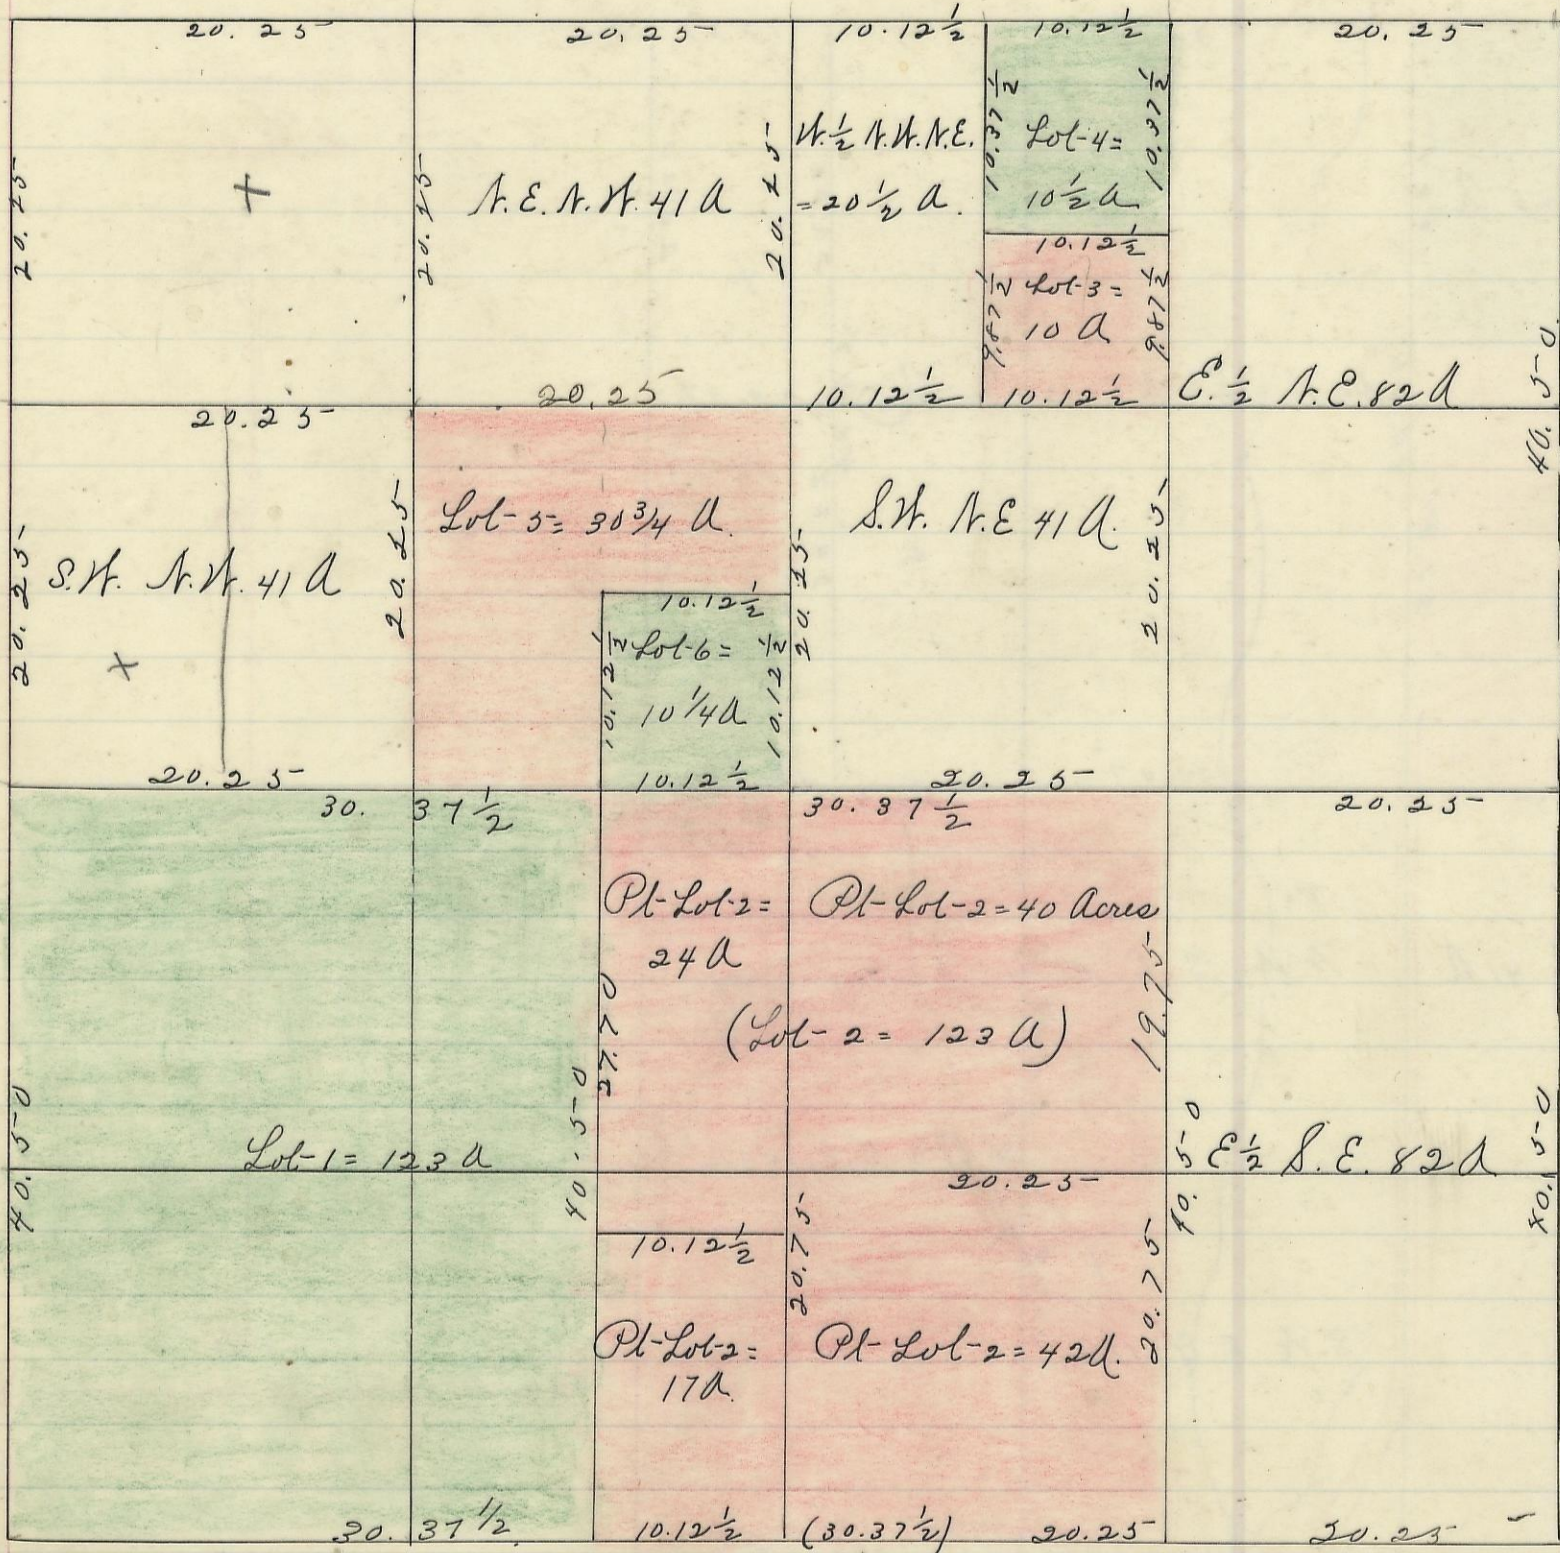 20.25
20.25
10.12 1/2
10.12 1/2
20.25
20.25
+
20.25
N.E. N.W. 41 A
20.25
W. 1/2 N.W. N.E.
= 20 1/2 A.
10.37 1/2
Lot-4=
10 1/2 A
10.37 1/2
10.12 1/2
9.87 1/2
Lot-3=
10 A
9.87 1/2
20.25
10.12 1/2
10.12 1/2
E. 1/2 N.E. 82 A
40.50
20.25
20.25
S.W. N.W. 41 A
+
20.25
Lot-5= 30 3/4 A.
20.25
S.W. N.E 41 A.
20.25
10.12 1/2
10.12 1/2
Lot-6=
10 1/4 A
10.12 1/2
20.25
10.12 1/2
20.25
30. 37 1/2
30.37 1/2
20.25
Pt-Lot-2=
24 A
Pt-Lot-2=40 Acres
19.75
(Lot-2 = 123 A)
40.50
Lot-1= 123 A
40.50
40.50
E 1/2 S.E. 82 A
40.50
20.25
10.12 1/2
20.75
20.75
Pt-Lot-2=
17 A.
Pt-Lot-2=42 A.
30. 37 1/2
10.12 1/2
(30.37 1/2)
20.25
20.25